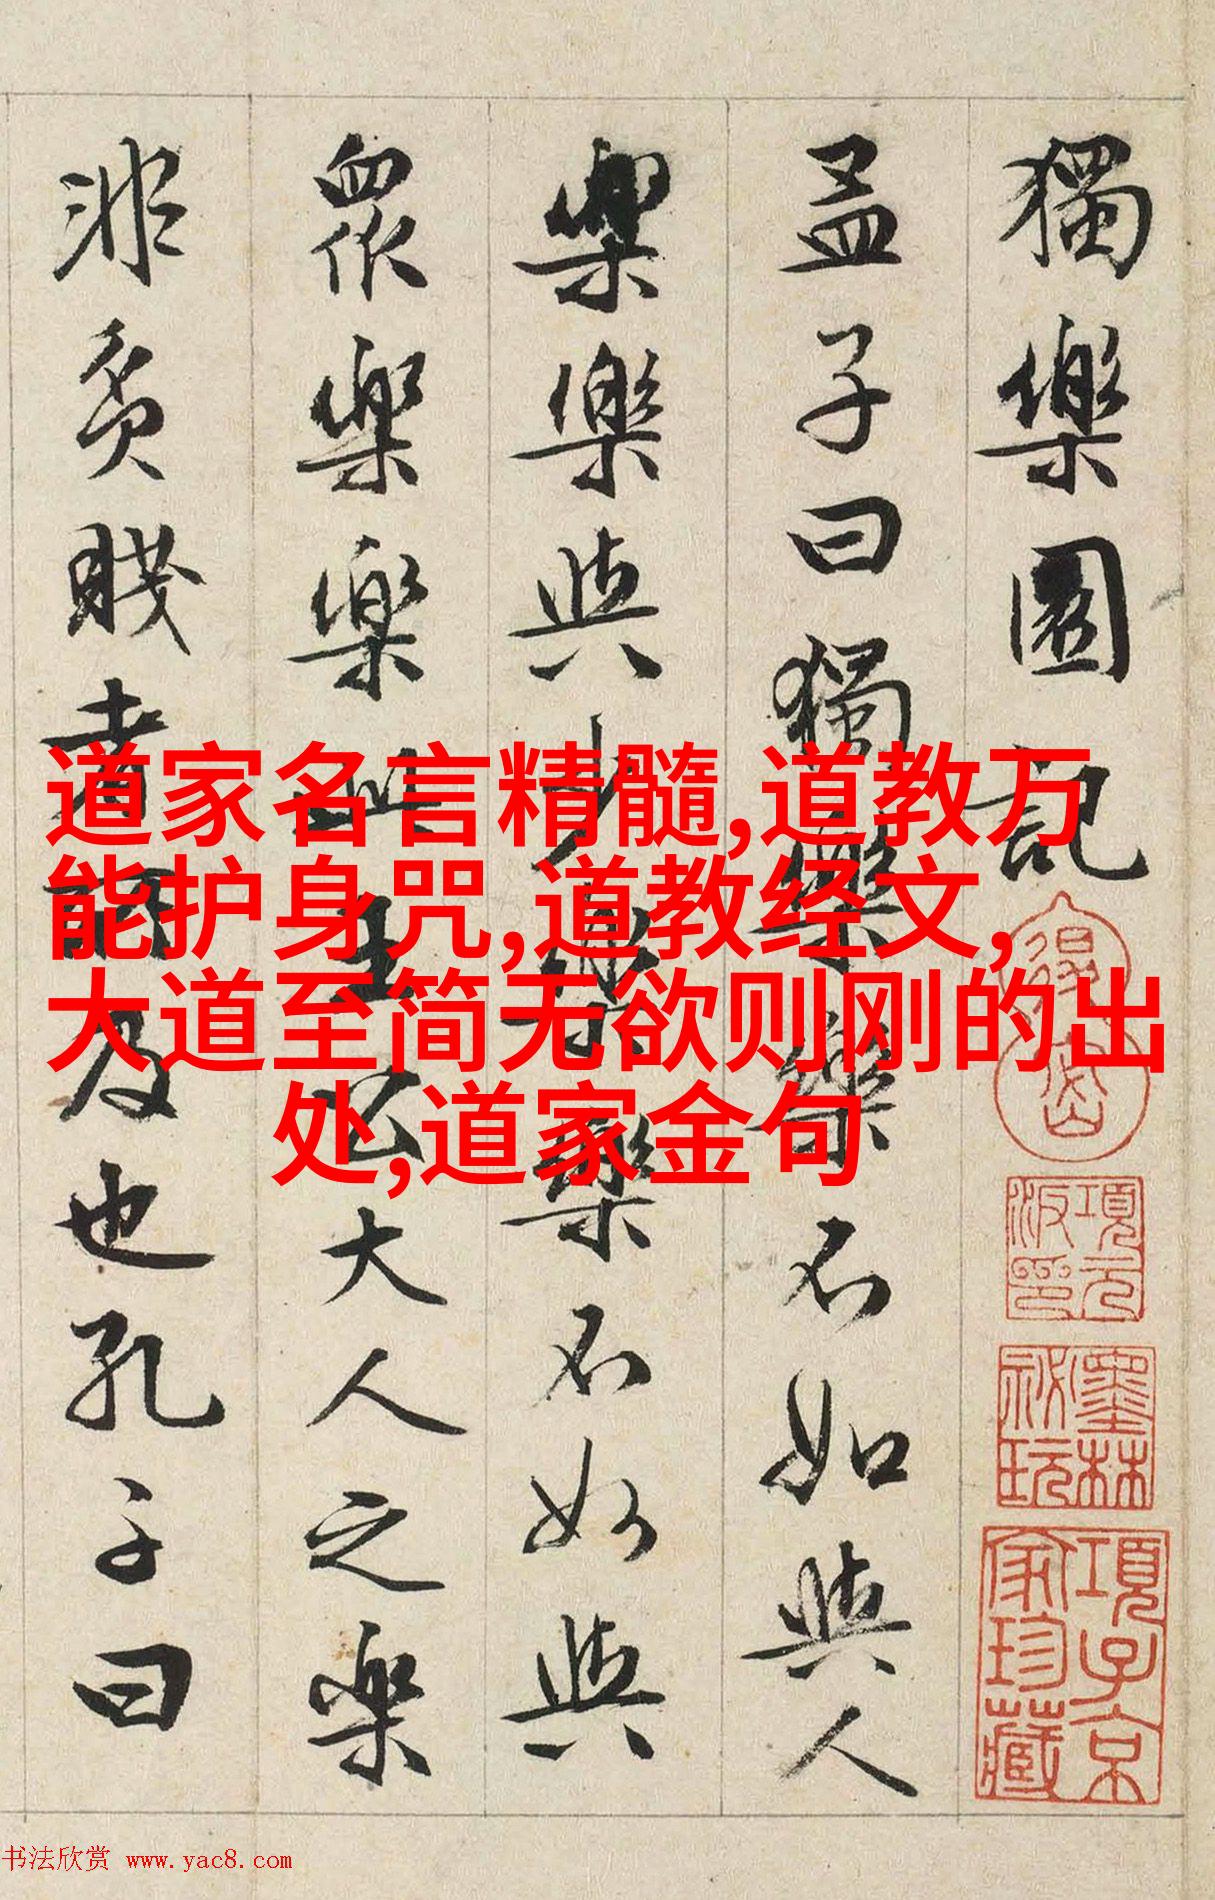 獨樂園記
孟子曰獨樂樂不如與人
樂樂與少樂樂不如與
眾樂樂此王公大人之樂
非貧賤者所及也孔子曰
道家名言精髓,道教万
能护身咒,道教经文,
大道至简无欲则刚的出
处,道家金句
項元汴印
墨林秘玩
項子京家珍藏
书法欣赏 www.yac8.com